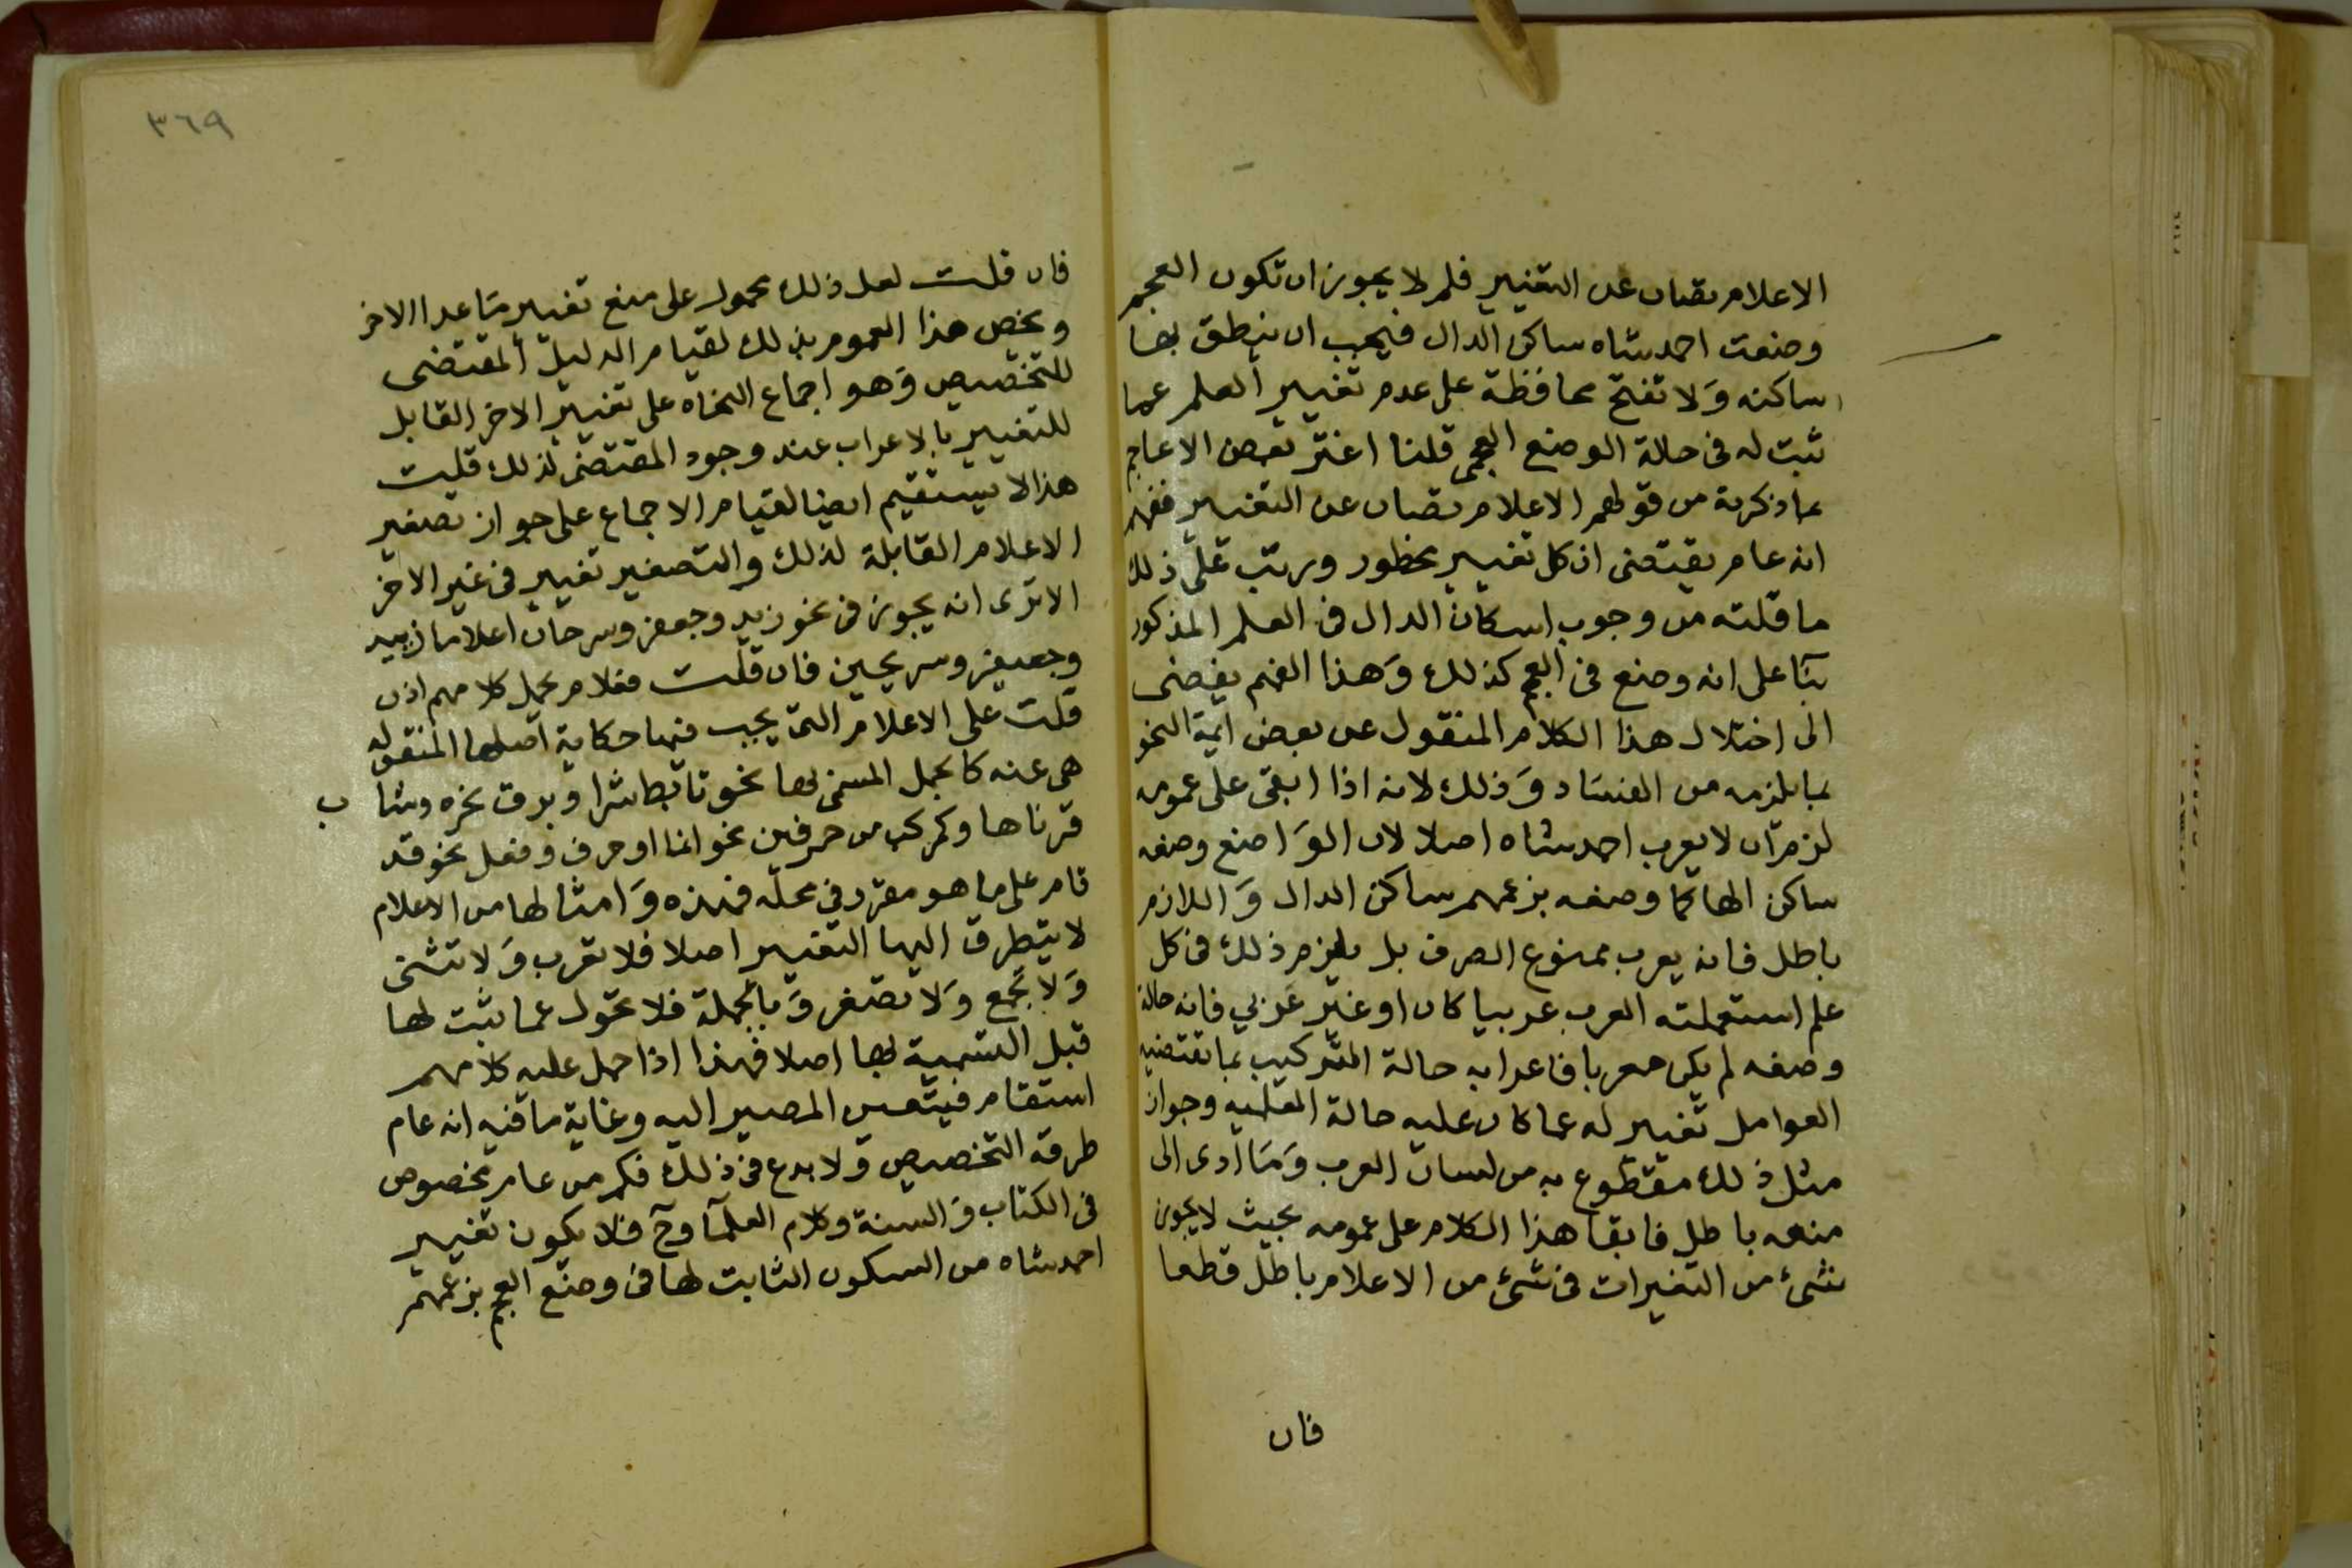 الاعلام تصان عن التغيير فلم لا يجوز ان تكون العجم
وضعت احمد شاه ساكن الدال فيجب ان ينطق بها
ساكنه وَلا تفتح محافظة على عدم تغيير العلم عما
ثبت له فى حالة الوضع العجمى قلنا اغترّ بعض الاعاجم
بما ذكرته من قولهم الاعلام تصان عن التغيير ففهم
انه عام يقتضى ان كل تغيير محظور ورتب على ذلك
ما قلته من وجوب اسكان الدال فى العلم المذكور
بنآ على انه وضع فى العجم كذلك وَهذا الفهم يفضى
الى اختلال هذا الكلام المنقول عن بعض ايمة النحو
بما يلزمه من الفسَاد وَذلك لانه اذا ابقى على عمومه
لزم ان لا يعرب احمد شاه اصلا لان الوَاضع وضعه
ساكن الها كما وضعه بزعمهم ساكن الدال وَاللازم
باطل فانه يعرب ممنوع الصرف بل يلزم ذلك فى كل
علم استعملته العرب عربيا كان او غير عَربي فانه حالة
وضعه لم يكن معربا فاعرابه حالة التركيب بما تقتضيه
العوامل تغيير له عما كان عليه حالة العلميه وجواز
مثل ذلك مقطوع به من لسان العرب وَمَا ادى الى
منعه باطل فابقا هذا الكلام على عمومه بحيث لا يجوز
شىء من التغيرات فى شىء من الاعلام باطل قطعا
فان
٣٦٩
فان قلت لعل ذلك محمول على منع تغيير مَا عدا الاخر
ويخص هذا العموم بذلك لقيام الدليل المقتضى
للتخصيص وَهو اجماع النحاه على تغيير الاخر القابل
للتغيير بالاعراب عند وجود المقتضى لذلك قلت
هذا لا يستقيم ايضا لقيام الاجماع على جواز تصغير
الاعلام القابلة لذلك والتصغير تغيير فى غير الاخر
الا ترى انه يجوز فى نحو زيد وجعفر وسرحان اعلاما زبيد
وجعيفر وسريحين فان قلت فعلام يحمل كلامهم اذن
قلت على الاعلام التى يجب فيها حكاية اصلها المنقولة
هى عنه كالجمل المسمى بها نحو تابط شرا وبرق نحره وشاب
قرناها وكمركب من حرفين نحو انما او حرف وفعل نحو قد
قام على ما هو مقرر فى محله فهذه وَامثالها من الاعلام
لا يتطرق اليها التغيير اصلا فلا تعرب وَلا تثنى
وَلا تجمع وَلا تصغر وَبالجملة فلا تحول عما يثبت لها
قبل التسمية بها اصلا فهذا اذا حمل عليه كلامهم
استقام فيتعين المصير اليه وغاية ما فيه انه عام
طرقه التخصيص وَلا بدع فى ذلك فكم من عام مخصوص
فى الكتاب وَالسنة وكلام العلمآ وح فلا يكون تغيير
احمد شاه من السكون الثابت لها فى وضع العجم بزعمهم